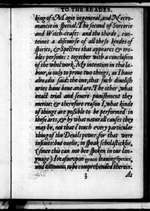 TO THE READER.
king of Magie in general, and Necro-
mancie in special. The second of Sorcerie
and Witch-craft: and the thirde, con-
teines a discourse of all these kindes of
spirites, & Spectres that appeares & trou-
bles persones: together with a conclusion
of the whol work. My intention in this la-
bour, is only to proue two things, as I haue
alreadie said: the one, that such diuelish
artes haue bene and are. The other, what
exact trial and seuere punishment they
merite: & therefore reason I, what kinde
of things are possible to be performed in
these arts, & by what naturall causes they
may be, not that I touch every particular
thing of the Deuils power, for that were
infinite: but onelie, to speak scholasticklie,
(since this can not bee spoken in our lan-
guage)